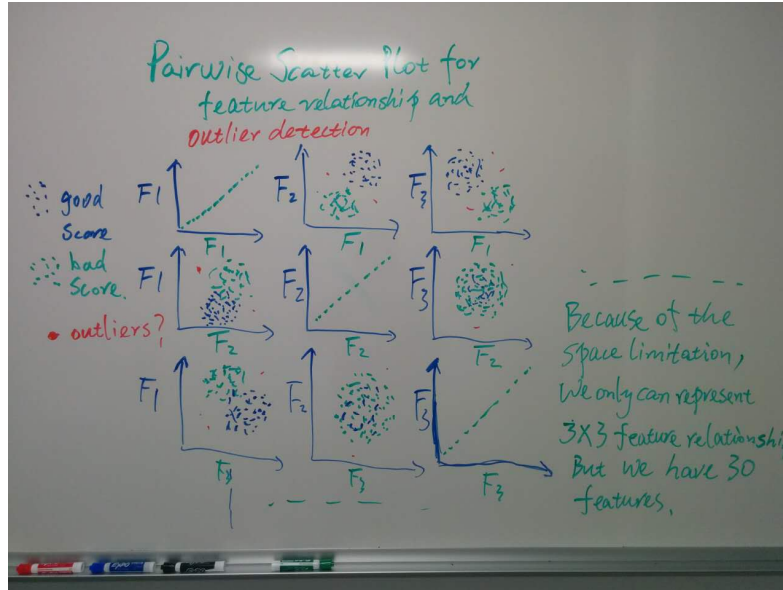 Pairwise Scatter Plot for
feature relationship and
outlier detection
good
score
bad
score.
• outliers?
F1
F1
F2
F1
F3
F1
F1
F2
F2
F2
F3
F2
F1
F3
F2
F3
F3
F3
Because of the
space limitation,
We only can represent
3X3 feature relationship
But we have 30
features.